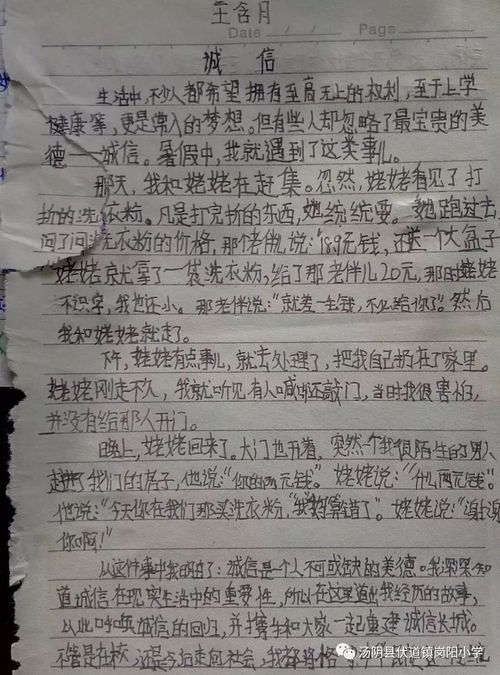 王含月
Date / / Page
诚 信
生活中,不少人都希望拥有至高无上的权利,至于上学
健康等,更是常人的梦想。但有些人却忽略了最宝贵的美
德——诚信。暑假中,我就遇到了这类事儿。
那天,我和姥姥在赶集。忽然,姥姥看见了打
折的洗衣粉。凡是打完折的东西,她统统要。她跑过去
问了问洗衣粉的价格,那个老伴儿说:“18.9元钱,还送一个大盆子
姥姥就拿了一袋洗衣粉,给了那老伴儿20元,那时姥姥
不识字,我也还小。那老伴说:“就差一毛钱,不必给你了”。然后
我和姥姥就走了。
下午,姥姥有点事儿,就去处理了,把我自己扔在了家里。
姥姥刚走不久,我就听见有人喊还敲门,当时我很害怕,
并没有给那人开门。
晚上,姥姥回来了。大门也开着,突然个我很陌生的男人
赶进了我们的房子,他说:“你的两元钱”。姥姥说:“什么两元钱”。
他说:“今天你在我们那买洗衣粉,“我爹算错了”。姥姥说:“谢谢
你啊!”
从这件事中我明白了:诚信是一个人不可或缺的美德。我深深知
道诚信在现实生活中的重要性,所以在这里道出我经历的故事,
以此呼唤诚信的回归,并携手和大家一起重建诚信长城。
不管是在校,还是今后走向社会,我都将格
汤阴县伏道镇岗阳小学